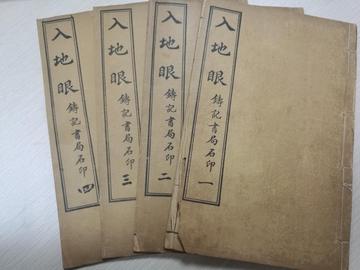 入地眼 鑄記書局石印 一
入地眼 鑄記書局石印 二
入地眼 鑄記書局石印 三
入地眼 鑄記書局石印 四